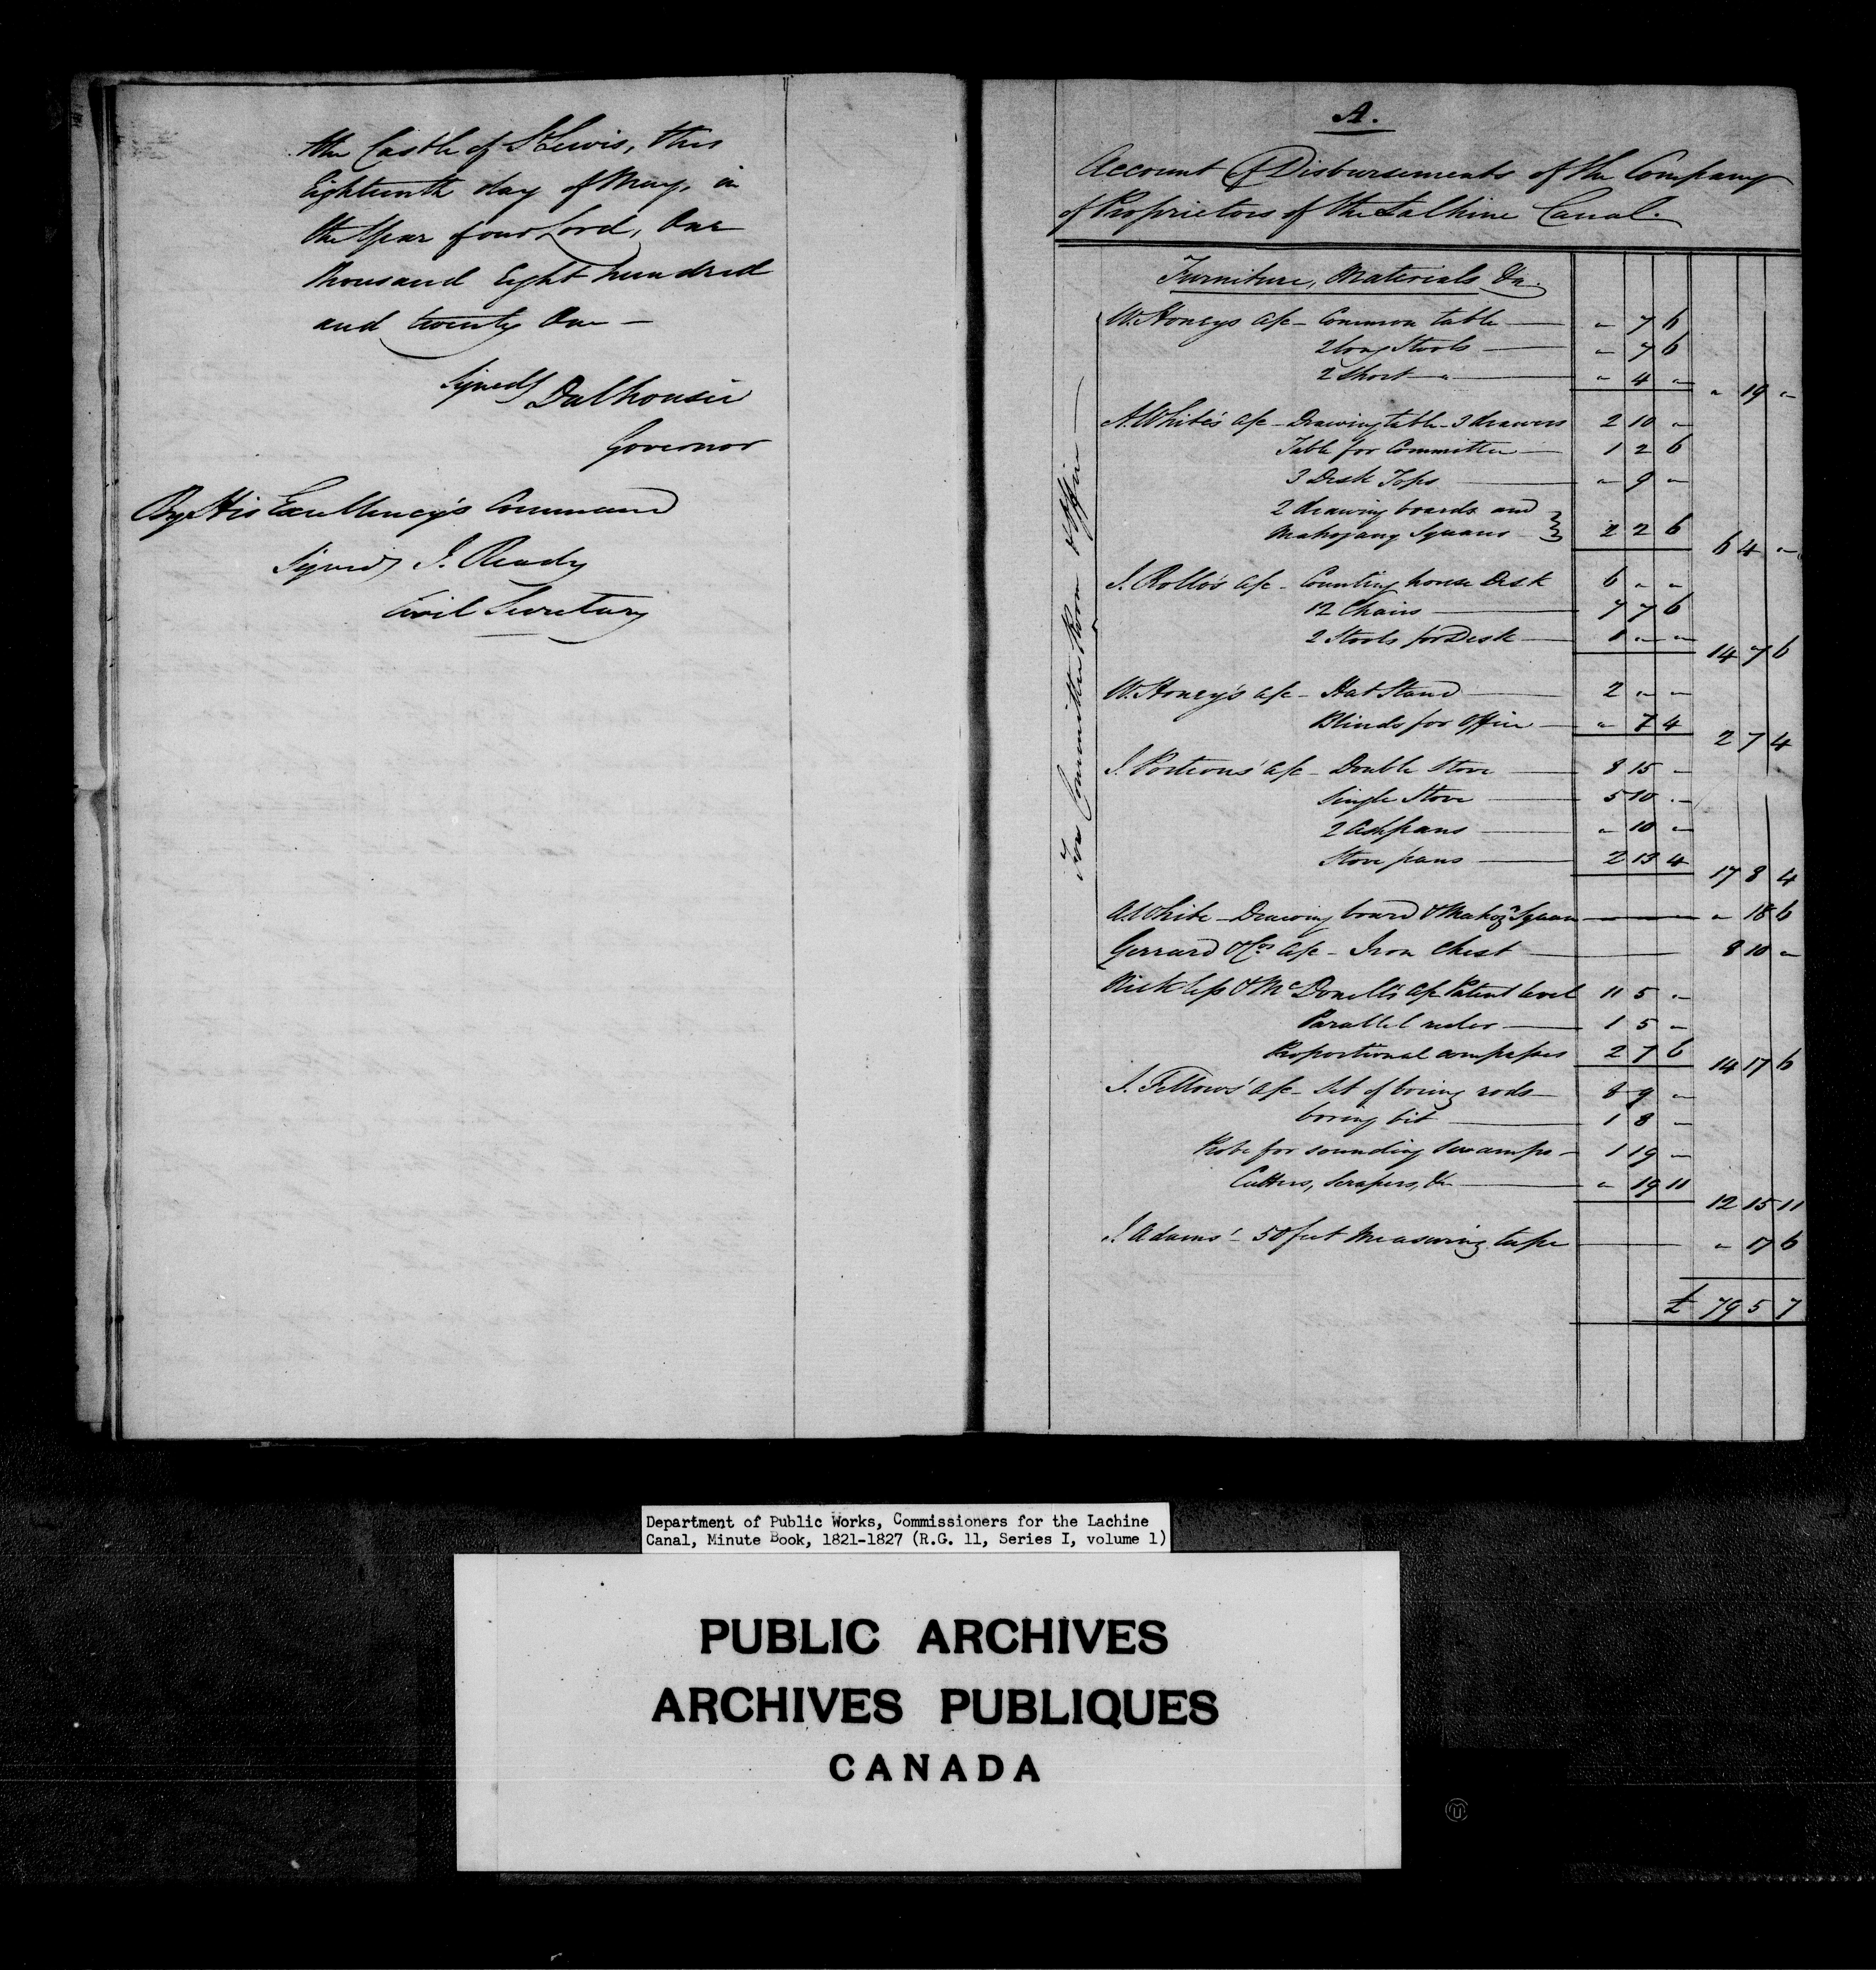 the Castle of St Lewis, this
Eighteenth day of May, in
the Year of our Lord, One
thousand Eight hundred
and twenty One —
Signed Dalhousie
Governor
By His Excellency's Command
Signed J. Ready
Civil Secretary
A.
Account of Disbursements of the Company
of Proprietors of the Lachine Canal.
Furniture, Materials &c.
For Committee Room & Office
W. Honeys a/c – Common table — " 7 6
2 long Stools — " 7 6
2 Short " — " 4 "
" 19 "
A. White's a/c – Drawing table – 3 drawers 2 10 "
Table for Committee — 1 2 6
3 Desk Tops — " 9 "
2 drawing boards and
Mahogany Squares } 2 2 6
6 4 "
J. Rollo's a/c – Counting house Desk 6 " "
12 Chairs — 7 7 6
2 Stools for Desk — 1 " "
14 7 6
W. Honey's a/c – Hat Stand — 2 " "
Blinds for Office — " 7 4
2 7 4
J. Porteous' a/c – Double Stove — 8 15 "
Single Stove — 5 10 "
2 Ashpans — " 10 "
Stove pans — 2 13 4
17 8 4
A. White – Drawing board & Mahogy Square — " 18 6
Gerrard & Cos a/c – Iron Chest — 8 10 "
& McDonell's a/c Patent level 11 5 "
Parallel ruler — 1 5 "
Proportional compasses 2 7 6
14 17 6
J. Fellows' a/c – Set of boring rods — 8 9 "
boring bit — 1 8 "
Probe for sounding swamps – 1 19 "
Cutters, Scrapers, &c — " 19 11
12 15 11
J. Adams' – 50 feet Measuring tape — " 17 6
£ 79 5 7
Department of Public Works, Commissioners for the Lachine
Canal, Minute Book, 1821-1827 (R.G. 11, Series I, volume 1)
PUBLIC ARCHIVES
ARCHIVES PUBLIQUES
CANADA